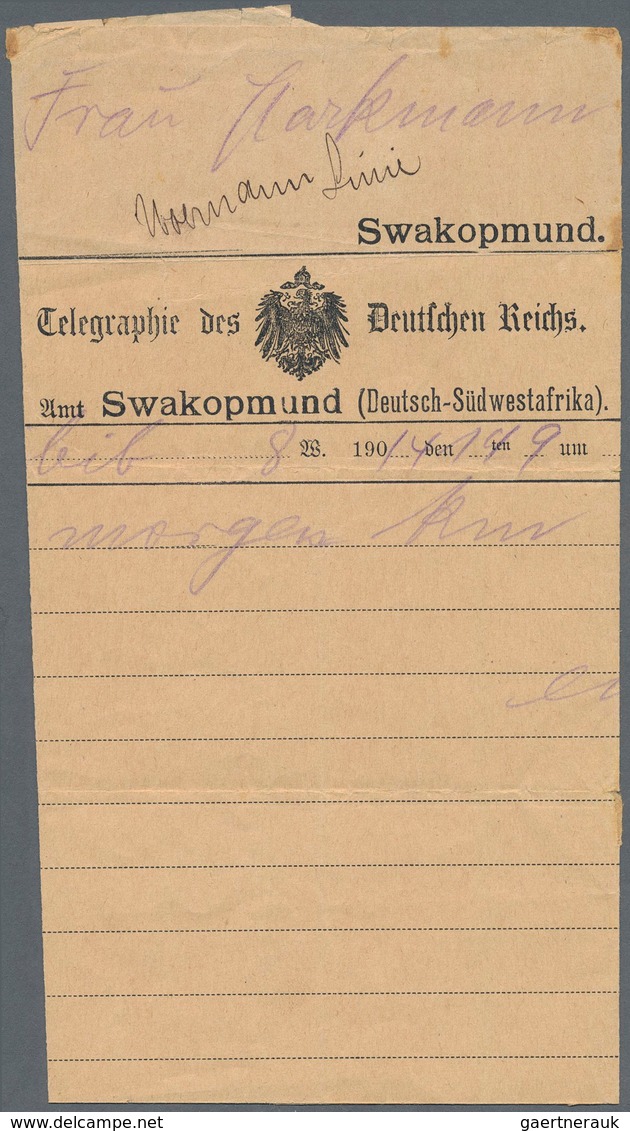 Frau Harkmann
Woermann Linie
Swakopmund.
Telegraphie des Deutschen Reichs.
Amt Swakopmund (Deutsch-Südwestafrika).
8 W. 190 den ten um
morgen km
gaertnerauk